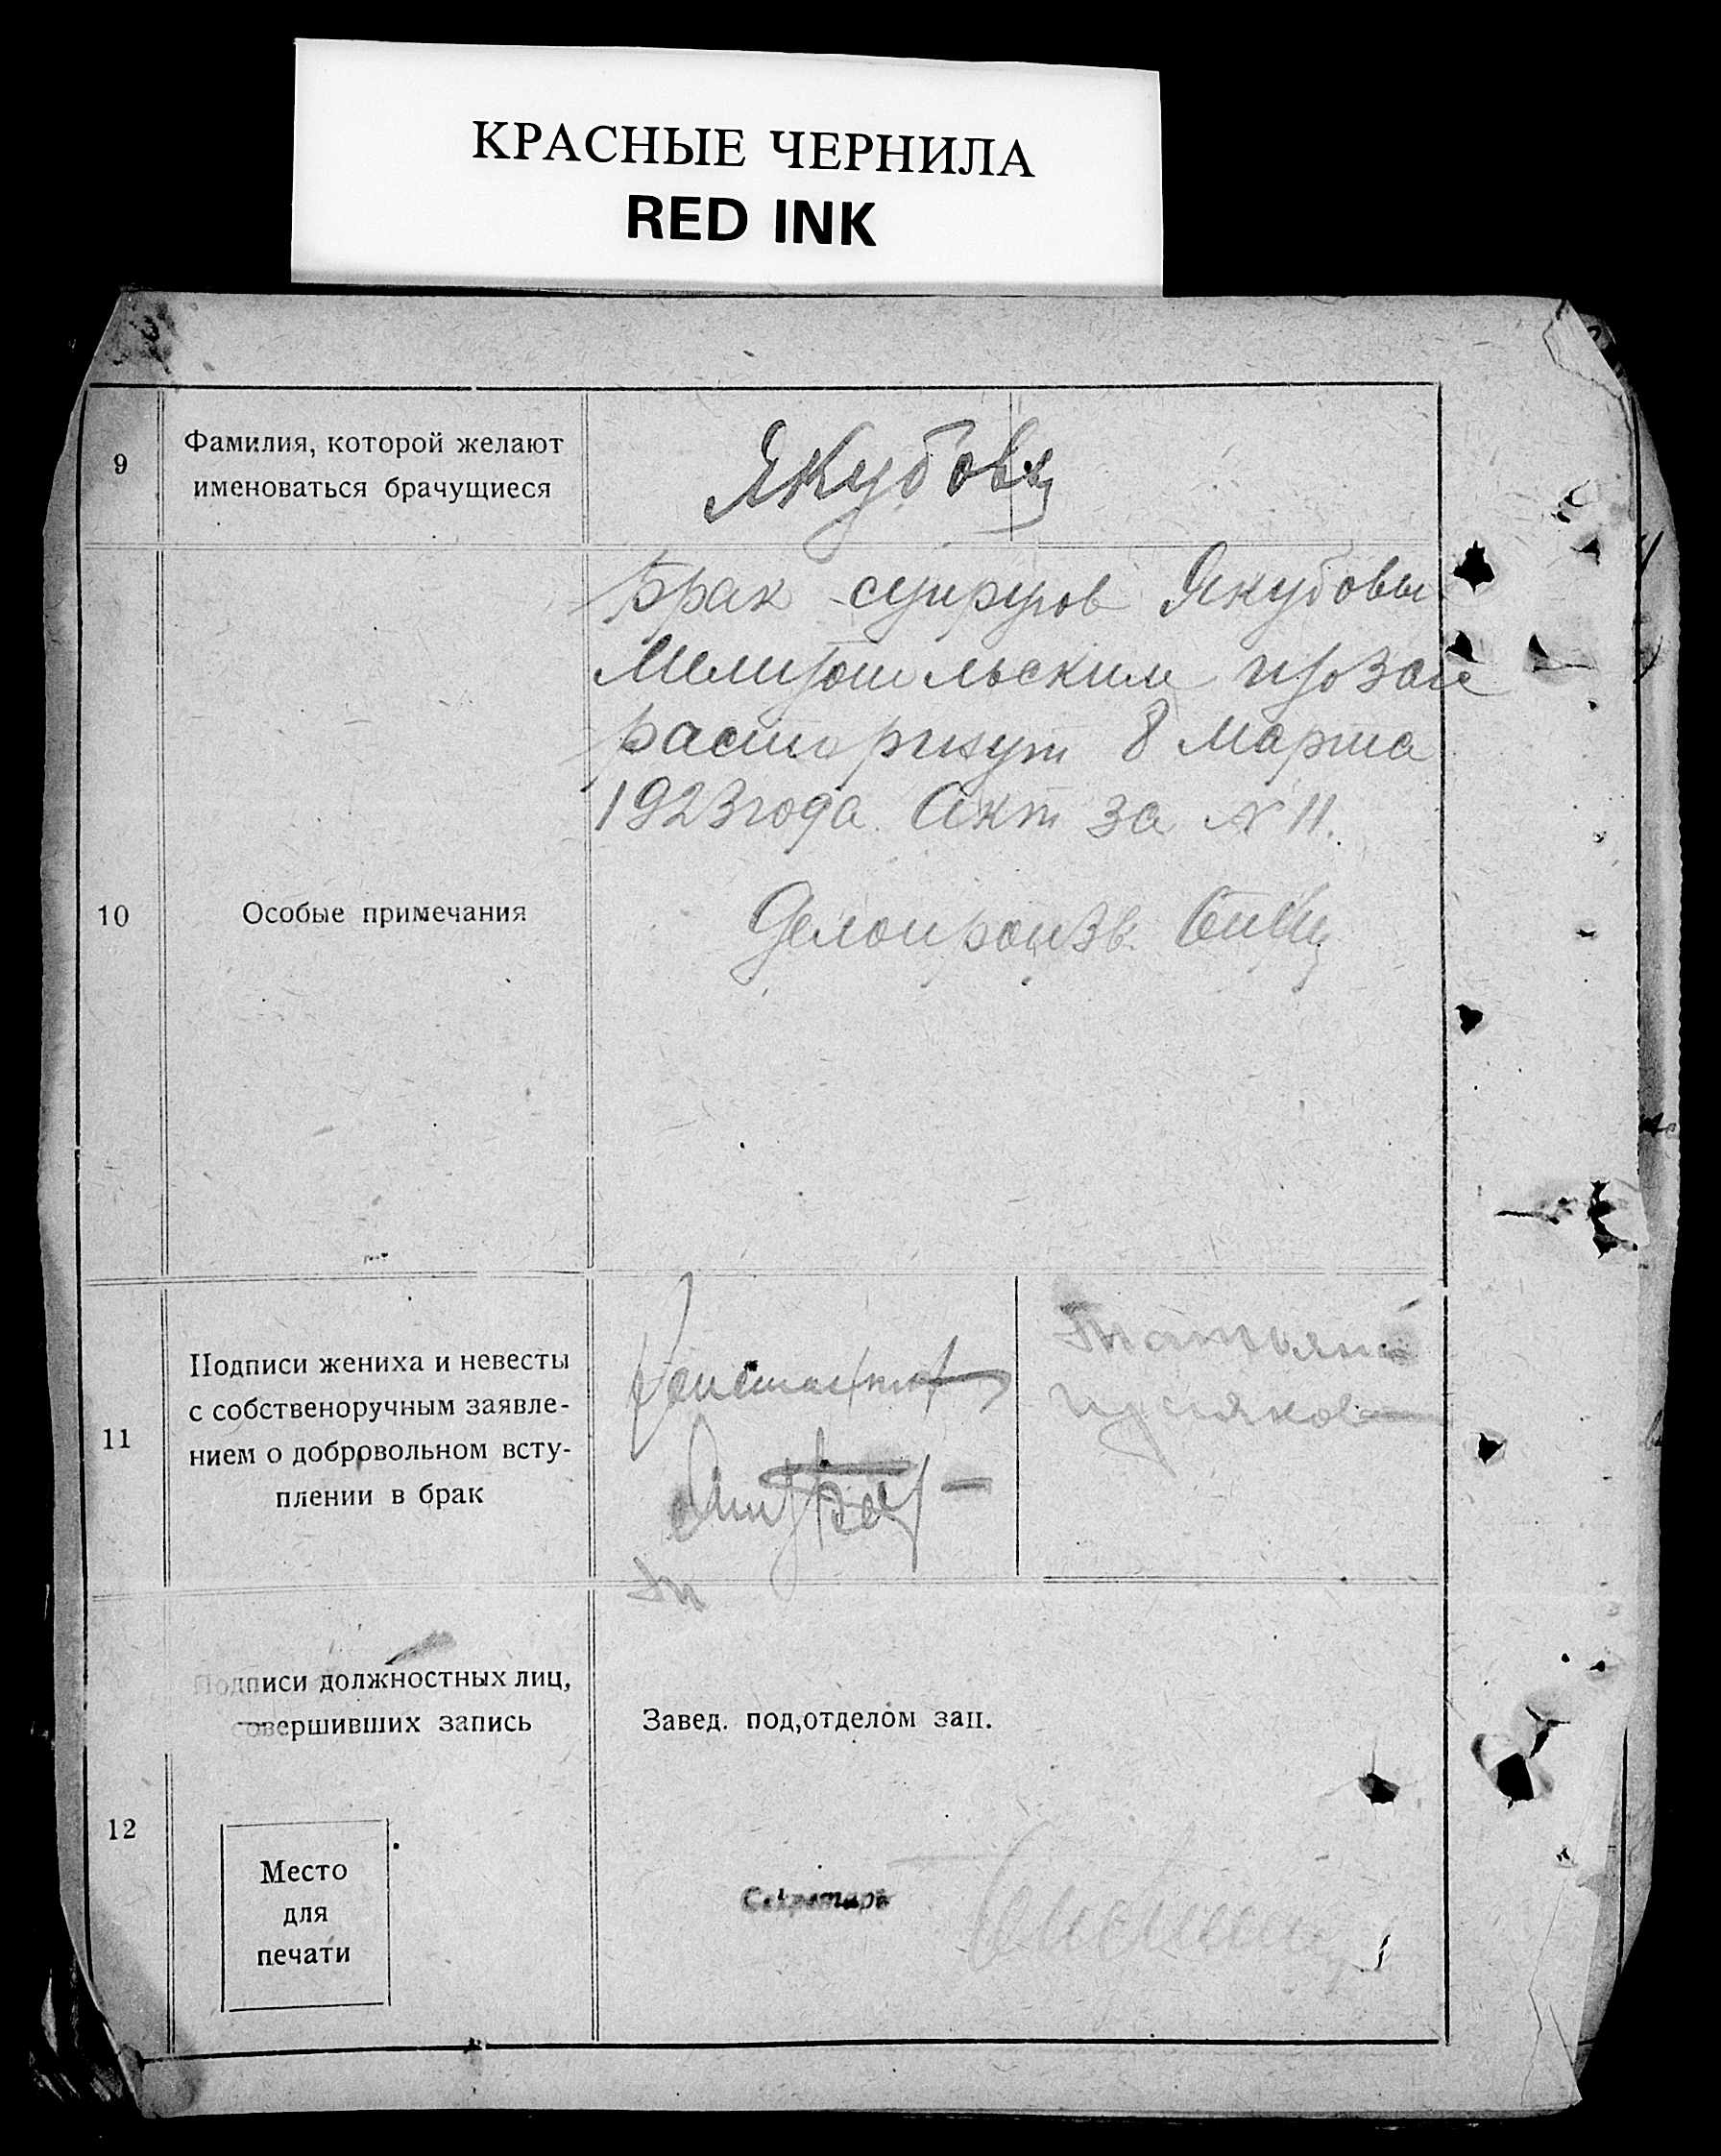 КРАСНЫЕ ЧЕРНИЛА
RED INK
9
Фамилия, которой желают
именоваться брачущиеся
Якубовы
10
Особые примечания
Брак супругов Якубовы
Мелитопольским
расторгнут 8 Марта
1923 года. Акт за № 11.
Делопроизв.
11
Подписи жениха и невесты
с собственоручным заявле-
нием о добровольном всту-
плении в брак
Константин
Татьяна
12
Подписи должностных лиц,
совершивших запись
Завед. под,отделом зап.
Секретарь
Место
для
печати